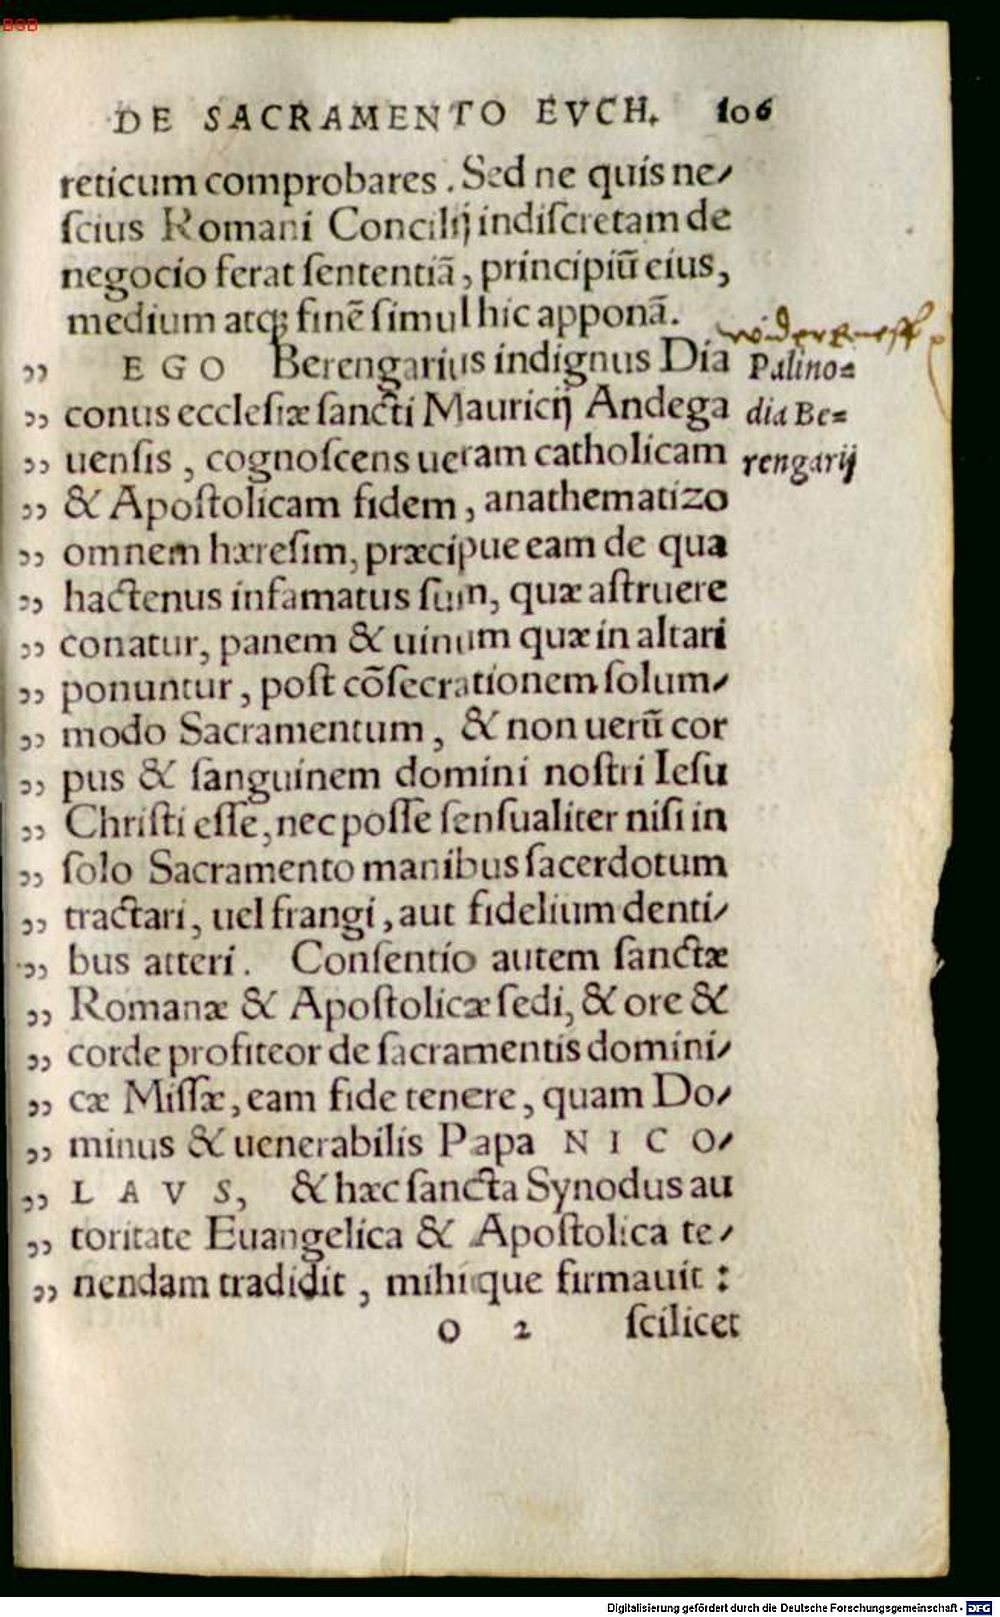 BSB
DE SACRAMENTO EVCH. 106
reticum comprobares. Sed ne quis ne/
ſcius Romani Concilij indiſcretam de
negocio ferat ſententiā, principiū eius,
medium atq; finē ſimul hic apponā.
„ EGO Berengarius indignus Dia
Palino=
„ conus eccleſiæ ſancti Mauricij Andega
dia Be=
„ uenſis, cognoſcens ueram catholicam
rengarij
„ & Apoſtolicam fidem, anathematizo
„ omnem hæreſim, præcipue eam de qua
„ hactenus infamatus ſum, quæ aſtruere
„ conatur, panem & uinum quæ in altari
„ ponuntur, poſt cōſecrationem ſolum/
„ modo Sacramentum, & non uerū cor
„ pus & ſanguinem domini noſtri Ieſu
„ Chriſti eſſe, nec poſſe ſenſualiter niſi in
„ ſolo Sacramento manibus ſacerdotum
„ tractari, uel frangi, aut fidelium denti/
„ bus atteri. Conſentio autem ſanctæ
„ Romanæ & Apoſtolicæ ſedi, & ore &
„ corde profiteor de ſacramentis domini/
„ cæ Miſſæ, eam fide tenere, quam Do/
„ minus & uenerabilis Papa NICO/
„ LAVS, & hæc ſancta Synodus au
„ toritate Euangelica & Apoſtolica te/
„ nendam tradidit, mihique firmauit :
O 2 ſcilicet
Digitalisierung gefördert durch die Deutsche Forschungsgemeinschaft - DFG